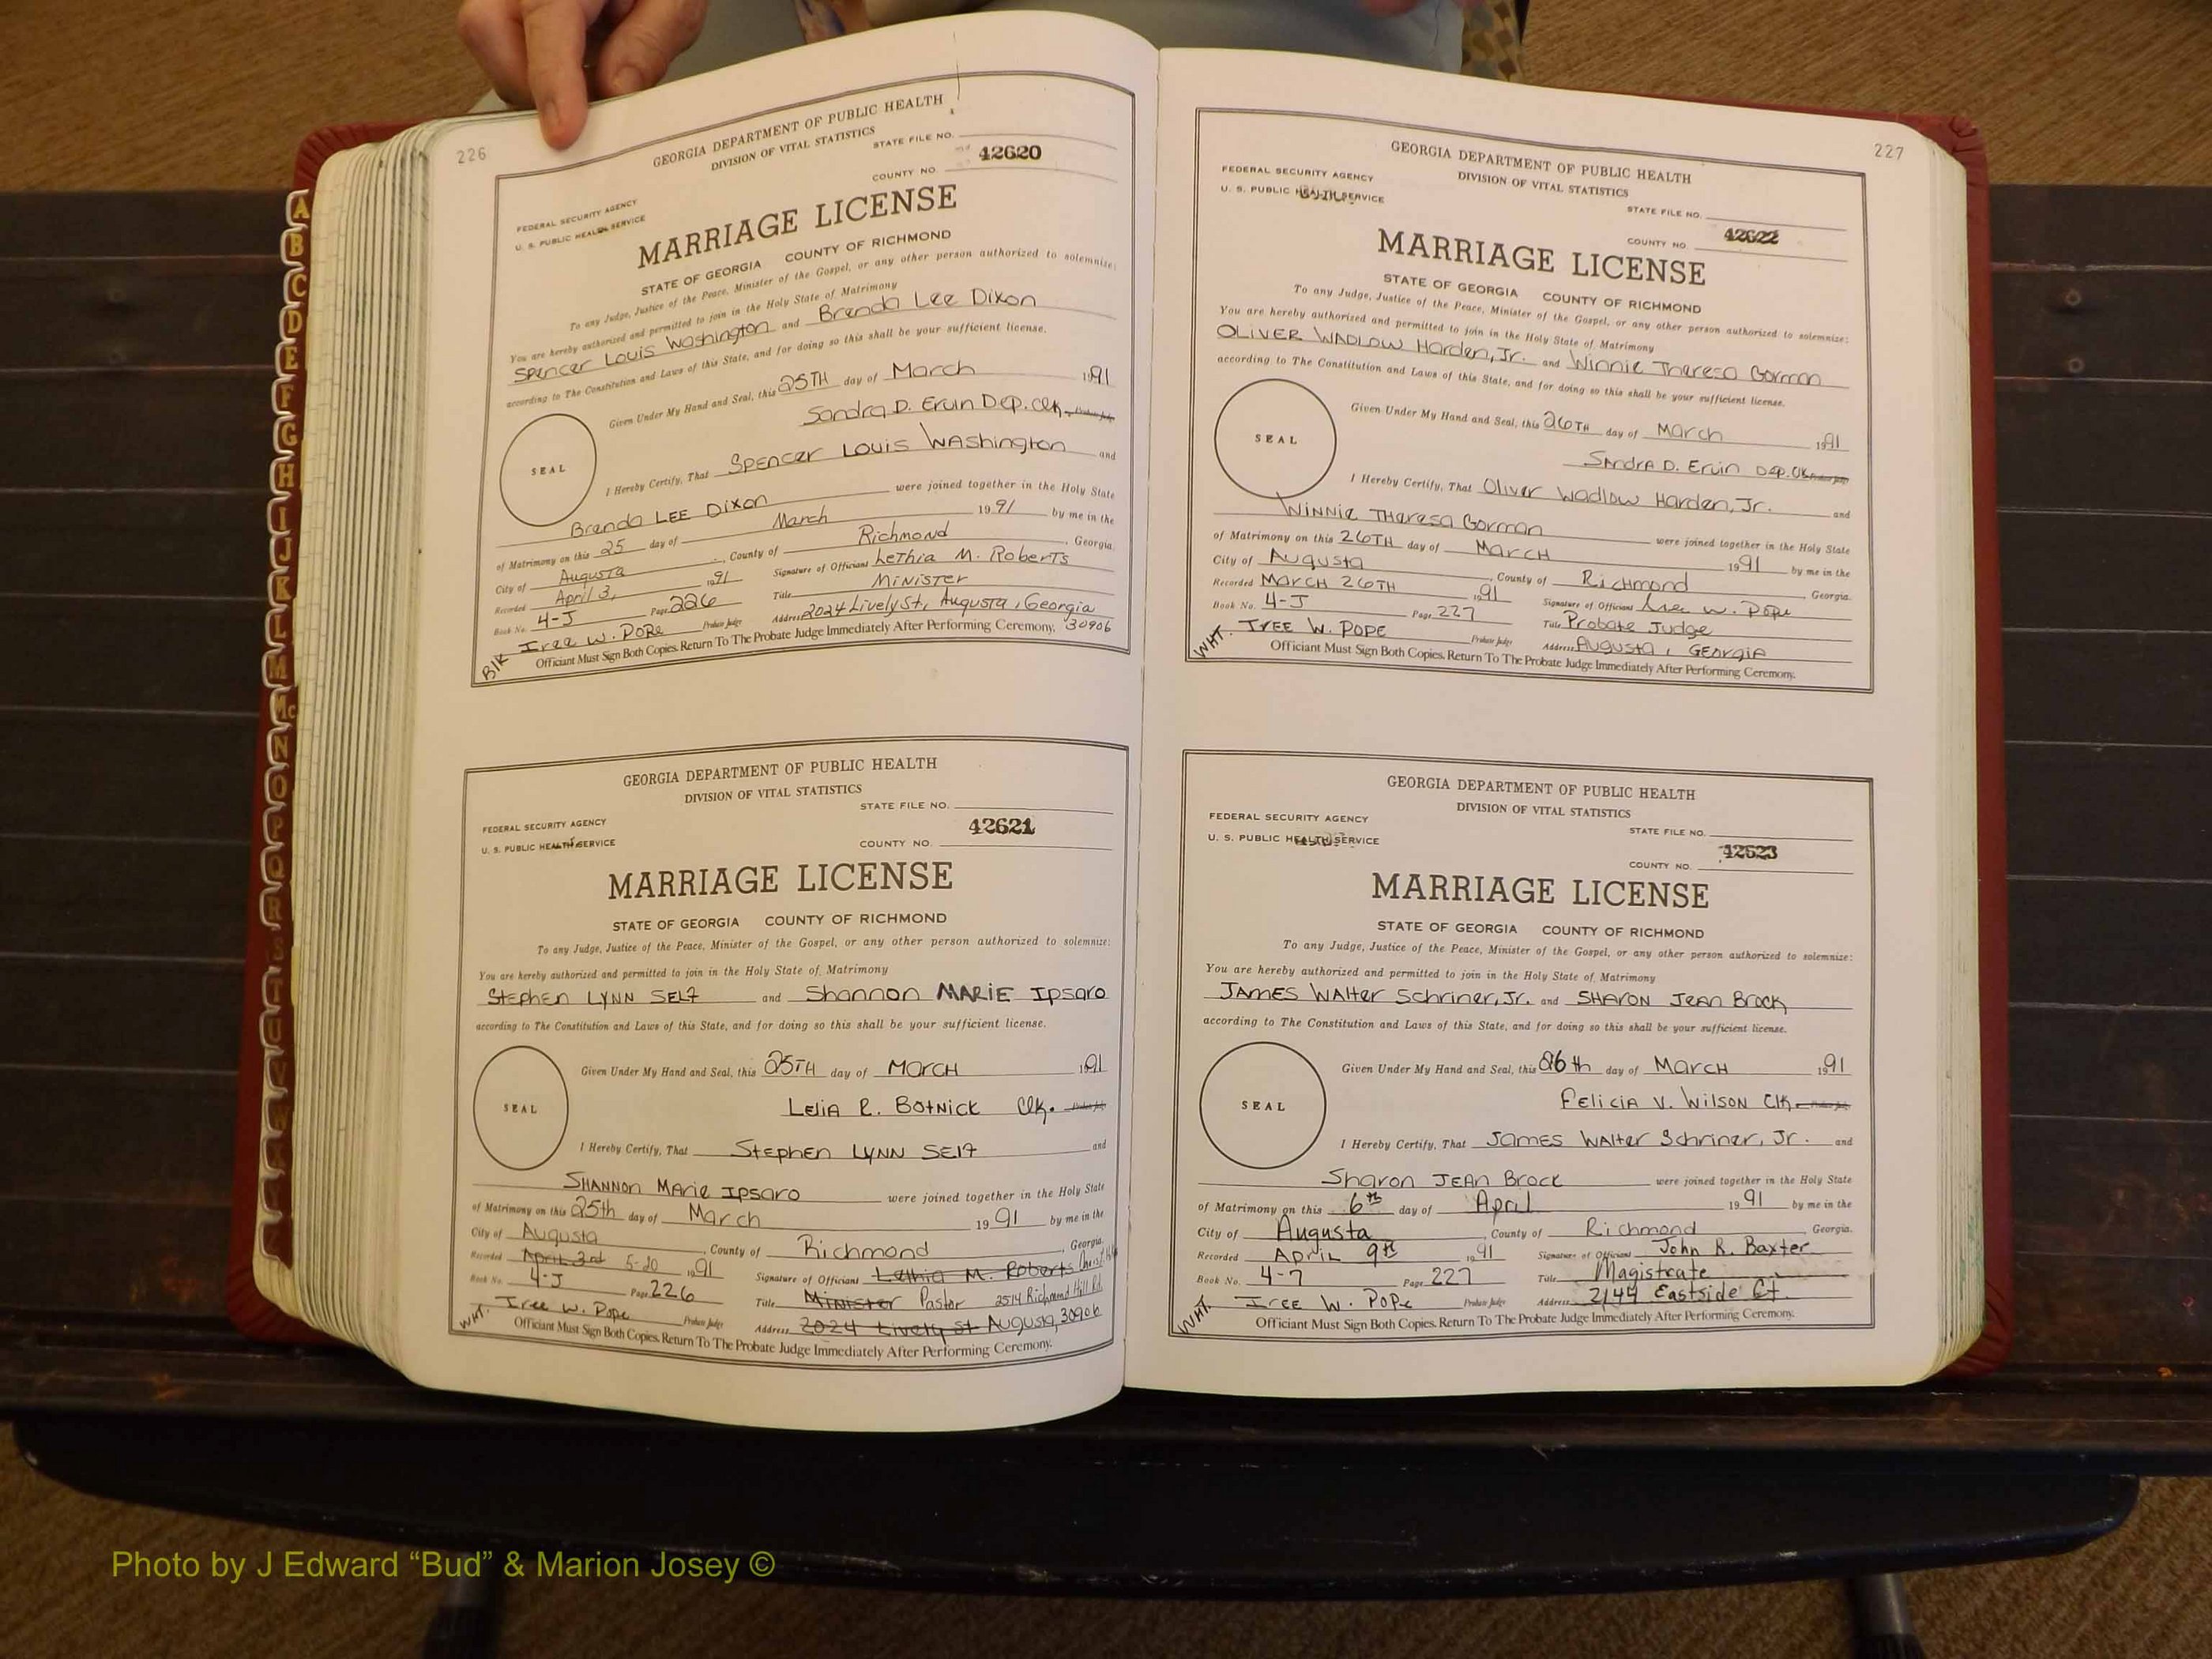 226
GEORGIA DEPARTMENT OF PUBLIC HEALTH
DIVISION OF VITAL STATISTICS
STATE FILE NO.
42620
COUNTY NO.
FEDERAL SECURITY AGENCY
U. S. PUBLIC HEALTH SERVICE
MARRIAGE LICENSE
STATE OF GEORGIA COUNTY OF RICHMOND
To any Judge, Justice of the Peace, Minister of the Gospel, or any other person authorized to solemnize:
You are hereby authorized and permitted to join in the Holy State of Matrimony
Spencer Louis Washington and Brenda Lee Dixon
according to The Constitution and Laws of this State, and for doing so this shall be your sufficient license.
Given Under My Hand and Seal, this 25TH day of March 1991
Sandra D. Ervin Dep. Clk. Probate Judge
SEAL
I Hereby Certify, That Spencer Louis Washington and
Brenda LEE Dixon were joined together in the Holy State
of Matrimony on this 25 day of March 1991 by me in the
City of Augusta, County of Richmond, Georgia.
Recorded April 3, 1991 Signature of Officiant Lethia M. Roberts
Book No. 4-J Page 226 Title Minister
Iree W. Pope Probate Judge Address 2024 Lively St, Augusta, Georgia 30906
Blk
Officiant Must Sign Both Copies. Return To The Probate Judge Immediately After Performing Ceremony.
GEORGIA DEPARTMENT OF PUBLIC HEALTH
DIVISION OF VITAL STATISTICS
STATE FILE NO.
FEDERAL SECURITY AGENCY
42621
U. S. PUBLIC HEALTH SERVICE
COUNTY NO.
MARRIAGE LICENSE
STATE OF GEORGIA COUNTY OF RICHMOND
To any Judge, Justice of the Peace, Minister of the Gospel, or any other person authorized to solemnize:
You are hereby authorized and permitted to join in the Holy State of Matrimony
Stephen LYNN SELF and Shannon MARIE Ipsaro
according to The Constitution and Laws of this State, and for doing so this shall be your sufficient license.
Given Under My Hand and Seal, this 25TH day of MARCH 1991
Lelia R. Botnick Clk. Probate Judge
SEAL
I Hereby Certify, That Stephen LYNN SElf and
SHANNON Marie Ipsaro were joined together in the Holy State
of Matrimony on this 25th day of March 1991 by me in the
City of Augusta, County of Richmond, Georgia.
Recorded April 3rd 5-20 1991 Signature of Officiant Lethia M. Roberts
Book No. 4-J Page 226 Title Minister Pastor 2514 Richmond Hill Rd.
Iree W. Pope Probate Judge Address 2024 Lively St Augusta, 30906
WHT.
Officiant Must Sign Both Copies. Return To The Probate Judge Immediately After Performing Ceremony.
227
GEORGIA DEPARTMENT OF PUBLIC HEALTH
DIVISION OF VITAL STATISTICS
FEDERAL SECURITY AGENCY
U. S. PUBLIC HEALTH SERVICE
STATE FILE NO.
42622
COUNTY NO.
MARRIAGE LICENSE
STATE OF GEORGIA COUNTY OF RICHMOND
To any Judge, Justice of the Peace, Minister of the Gospel, or any other person authorized to solemnize:
You are hereby authorized and permitted to join in the Holy State of Matrimony
OLIVER WADLOW Harden, Jr. and Winnie Theresa Gorman
according to The Constitution and Laws of this State, and for doing so this shall be your sufficient license.
Given Under My Hand and Seal, this 26TH day of March 1991
Sandra D. Ervin Dep. Clk Probate Judge
SEAL
I Hereby Certify, That Oliver Wadlow Harden, Jr. and
Winnie Theresa Gorman were joined together in the Holy State
of Matrimony on this 26TH day of March 1991 by me in the
City of Augusta, County of Richmond Georgia.
Recorded March 26TH 1991 Signature of Officiant Iree W. Pope
Book No. 4-J Page 227 Title Probate Judge
IREE W. POPE Probate Judge Address Augusta, Georgia
WHT.
Officiant Must Sign Both Copies. Return To The Probate Judge Immediately After Performing Ceremony.
GEORGIA DEPARTMENT OF PUBLIC HEALTH
DIVISION OF VITAL STATISTICS
FEDERAL SECURITY AGENCY
STATE FILE NO.
U. S. PUBLIC HEALTH SERVICE
42623
COUNTY NO.
MARRIAGE LICENSE
STATE OF GEORGIA COUNTY OF RICHMOND
To any Judge, Justice of the Peace, Minister of the Gospel, or any other person authorized to solemnize:
You are hereby authorized and permitted to join in the Holy State of Matrimony
JAMES WAlter Schriner, Jr. and SHARON JEAN Brock
according to The Constitution and Laws of this State, and for doing so this shall be your sufficient license.
Given Under My Hand and Seal, this 26th day of MARCH 1991
Felicia V. Wilson Clk. Probate Judge
SEAL
I Hereby Certify, That JAMES WAlter Schriner, Jr. and
Sharon JEAN Brock were joined together in the Holy State
of Matrimony on this 6th day of April 1991 by me in the
City of Augusta, County of Richmond, Georgia.
Recorded April 9th 1991 Signature of Officiant John R. Baxter
Book No. 4-7 Page 227 Title Magistrate
Iree W. Pope Probate Judge Address 2144 Eastside Ct.
WHT.
Officiant Must Sign Both Copies. Return To The Probate Judge Immediately After Performing Ceremony.
A
B
C
D
E
F
G
H
I
J
K
L
M
Mc
N
O
P
Q
R
S
T
U
V
W
Y
Z
Photo by J Edward “Bud” & Marion Josey ©